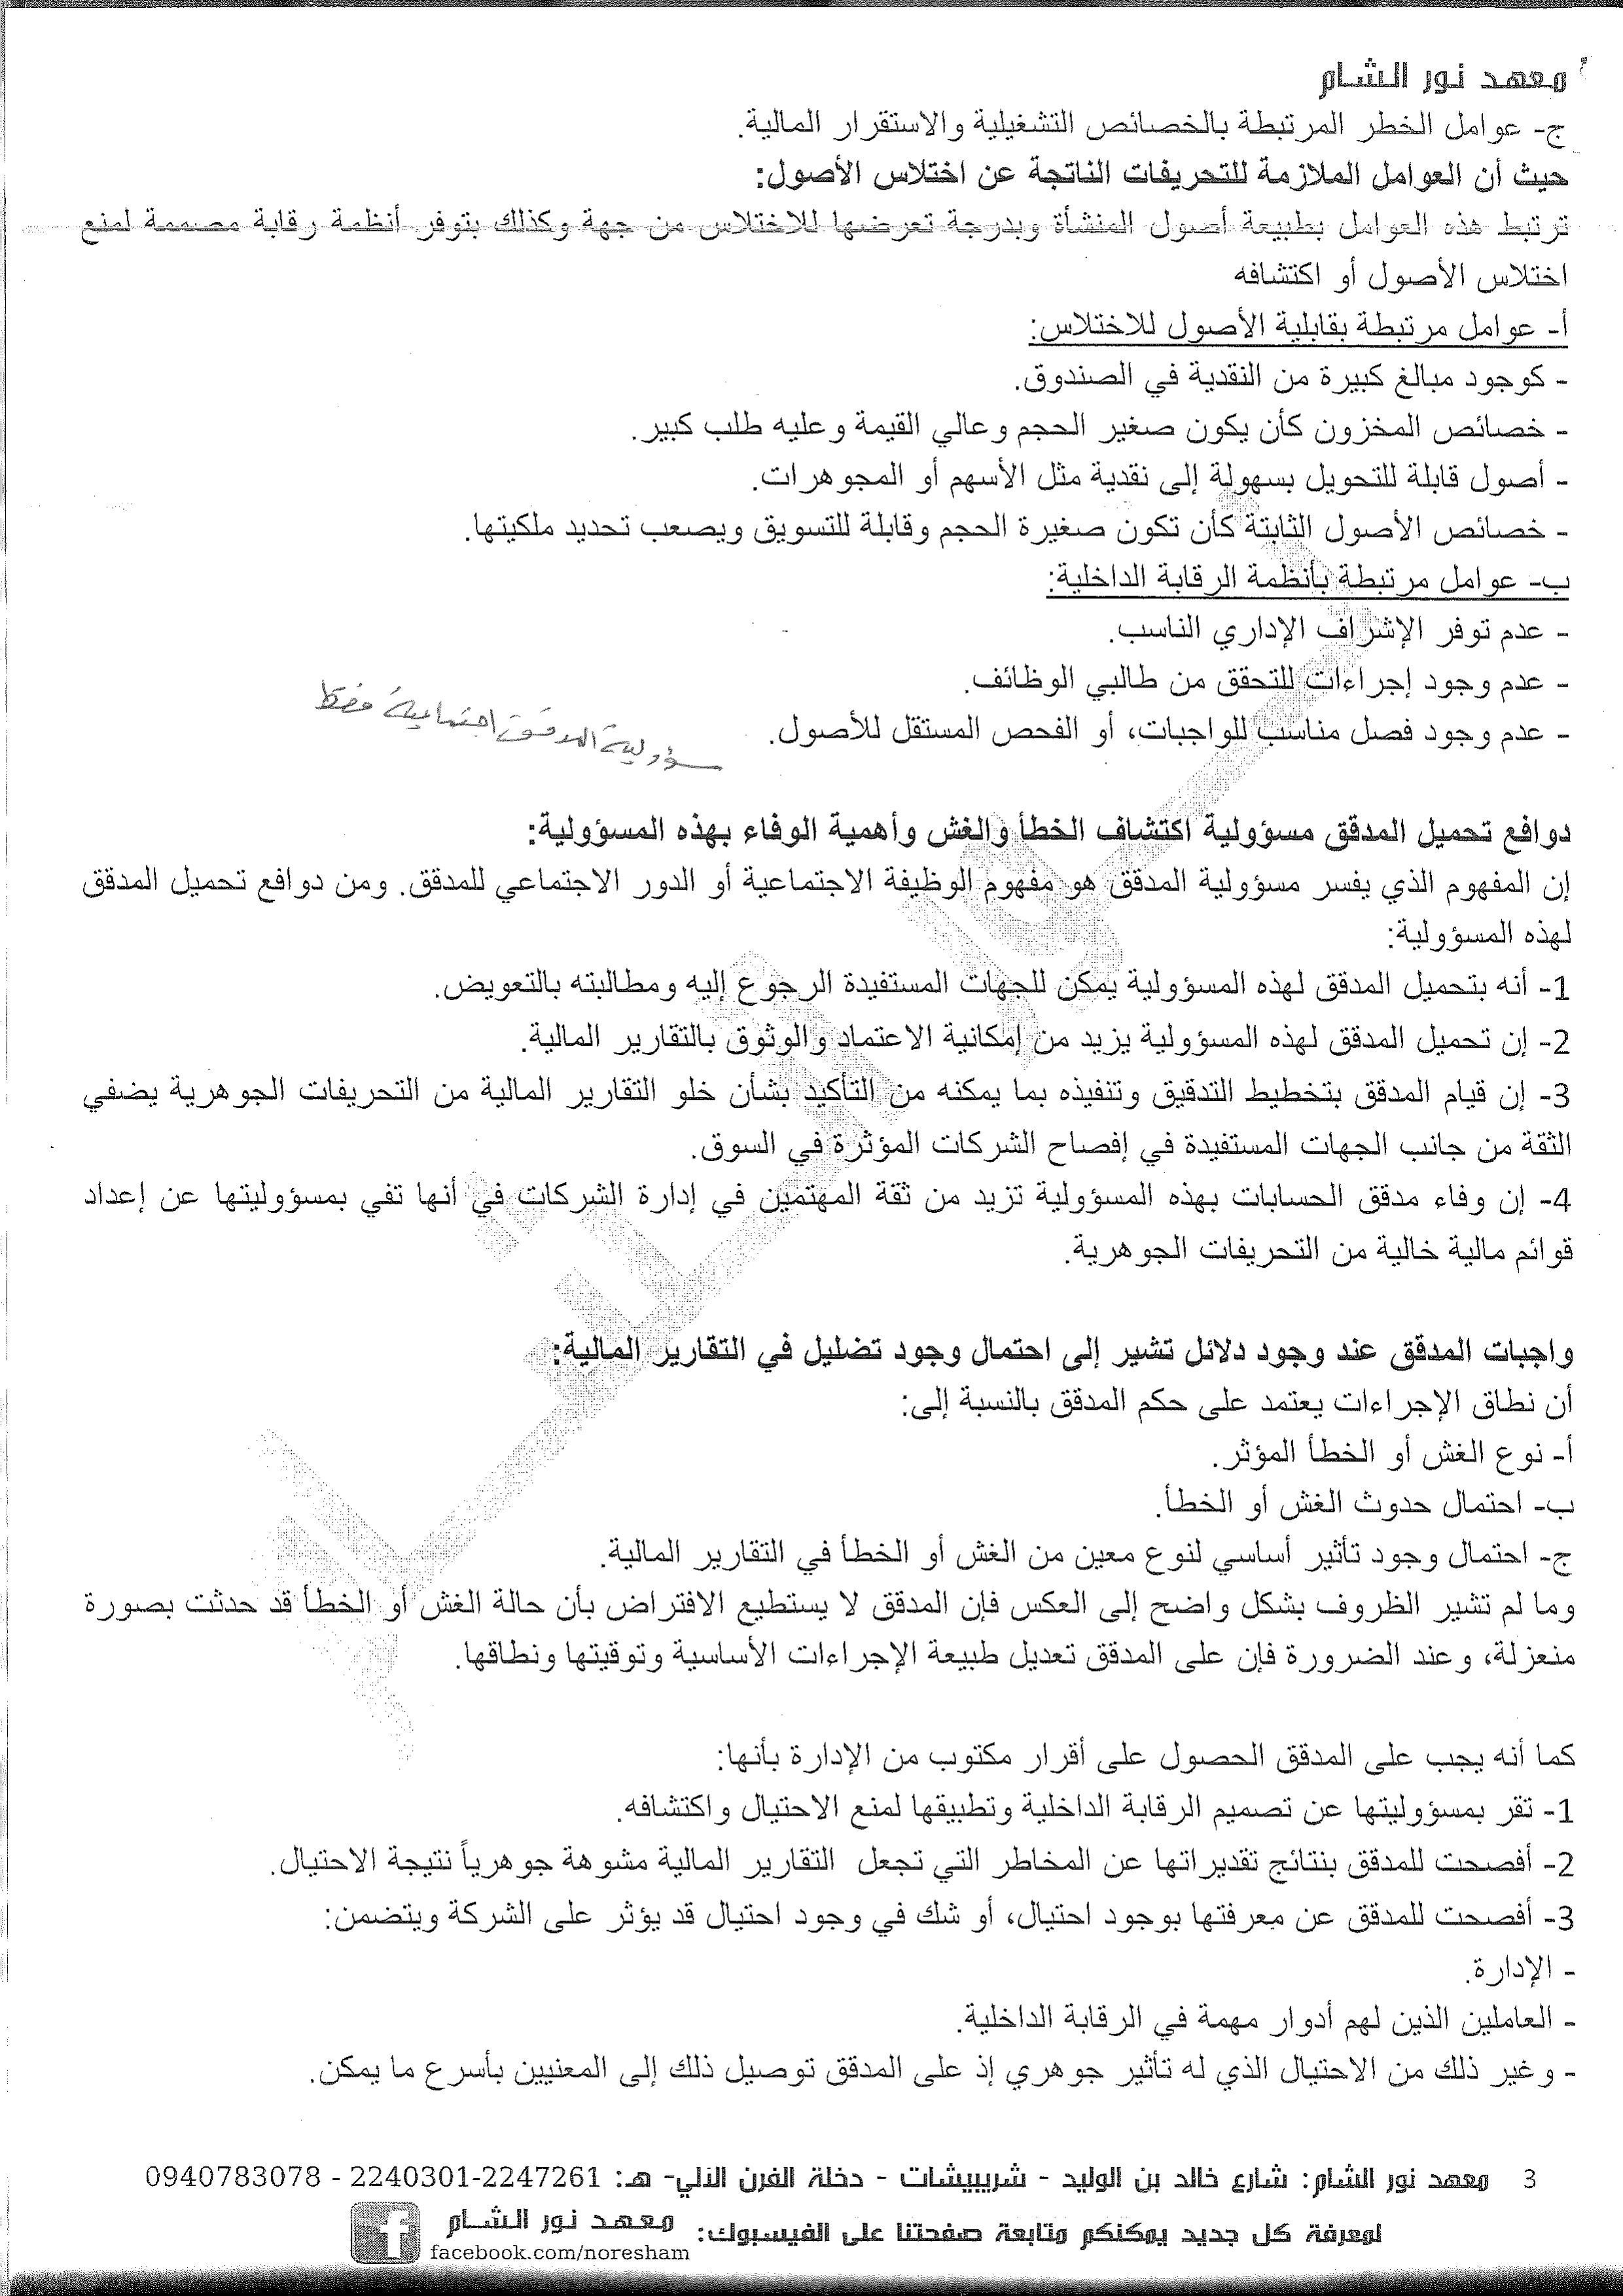 معهد نور الشام
ج- عوامل الخطر المرتبطة بالخصائص التشغيلية والاستقرار المالية.
حيث أن العوامل الملازمة للتحريفات الناتجة عن اختلاس الأصول:
ترتبط هذه العوامل بطبيعة أصول المنشأة وبدرجة تعرضها للاختلاس من جهة وكذلك بتوفر أنظمة رقابة مصممة لمنع
اختلاس الأصول أو اكتشافه
أ- عوامل مرتبطة بقابلية الأصول للاختلاس:
- كوجود مبالغ كبيرة من النقدية في الصندوق.
- خصائص المخزون كأن يكون صغير الحجم وعالي القيمة وعليه طلب كبير.
- أصول قابلة للتحويل بسهولة إلى نقدية مثل الأسهم أو المجوهرات.
- خصائص الأصول الثابتة كأن تكون صغيرة الحجم وقابلة للتسويق ويصعب تحديد ملكيتها.
ب- عوامل مرتبطة بأنظمة الرقابة الداخلية:
- عدم توفر الإشراف الإداري الناسب.
- عدم وجود إجراءات للتحقق من طالبي الوظائف.
- عدم وجود فصل مناسب للواجبات، أو الفحص المستقل للأصول.
مسؤولية المدقق اجتماعية فقط
دوافع تحميل المدقق مسؤولية اكتشاف الخطأ والغش وأهمية الوفاء بهذه المسؤولية:
إن المفهوم الذي يفسر مسؤولية المدقق هو مفهوم الوظيفة الاجتماعية أو الدور الاجتماعي للمدقق. ومن دوافع تحميل المدقق
لهذه المسؤولية:
1- أنه بتحميل المدقق لهذه المسؤولية يمكن للجهات المستفيدة الرجوع إليه ومطالبته بالتعويض.
2- إن تحميل المدقق لهذه المسؤولية يزيد من إمكانية الاعتماد والوثوق بالتقارير المالية.
3- إن قيام المدقق بتخطيط التدقيق وتنفيذه بما يمكنه من التأكيد بشأن خلو التقارير المالية من التحريفات الجوهرية يضفي
الثقة من جانب الجهات المستفيدة في إفصاح الشركات المؤثرة في السوق.
4- إن وفاء مدقق الحسابات بهذه المسؤولية تزيد من ثقة المهتمين في إدارة الشركات في أنها تفي بمسؤوليتها عن إعداد
قوائم مالية خالية من التحريفات الجوهرية.
واجبات المدقق عند وجود دلائل تشير إلى احتمال وجود تضليل في التقارير المالية:
أن نطاق الإجراءات يعتمد على حكم المدقق بالنسبة إلى:
أ- نوع الغش أو الخطأ المؤثر.
ب- احتمال حدوث الغش أو الخطأ.
ج- احتمال وجود تأثير أساسي لنوع معين من الغش أو الخطأ في التقارير المالية.
وما لم تشير الظروف بشكل واضح إلى العكس فإن المدقق لا يستطيع الافتراض بأن حالة الغش أو الخطأ قد حدثت بصورة
منعزلة، وعند الضرورة فإن على المدقق تعديل طبيعة الإجراءات الأساسية وتوقيتها ونطاقها.
كما أنه يجب على المدقق الحصول على أقرار مكتوب من الإدارة بأنها:
1- تقر بمسؤوليتها عن تصميم الرقابة الداخلية وتطبيقها لمنع الاحتيال واكتشافه.
2- أفصحت للمدقق بنتائج تقديراتها عن المخاطر التي تجعل التقارير المالية مشوهة جوهرياً نتيجة الاحتيال.
3- أفصحت للمدقق عن معرفتها بوجود احتيال، أو شك في وجود احتيال قد يؤثر على الشركة ويتضمن:
- الإدارة.
- العاملين الذين لهم أدوار مهمة في الرقابة الداخلية.
- وغير ذلك من الاحتيال الذي له تأثير جوهري إذ على المدقق توصيل ذلك إلى المعنيين بأسرع ما يمكن.
3 معهد نور الشام: شارع خالد بن الوليد - شريبيشات - دخلة الفرن الآلي- هـ: 2247261-2240301 - 0940783078
لمعرفة كل جديد يمكنكم متابعة صفحتنا على الفيسبوك: معهد نور الشام
facebook.com/noresham